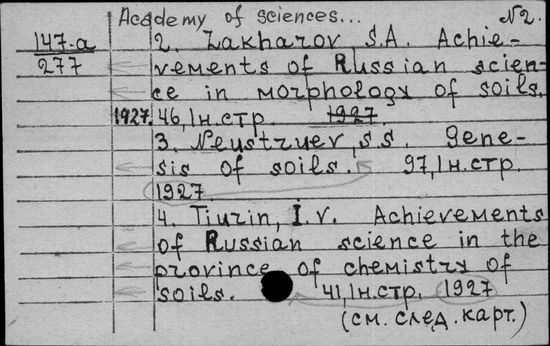 Academy of sciences... №2.
147-a
277
2. Zakharov, S.A. Achie-
vements of Russian scien-
ce in morphology of soils.
1927. 46, 1н.стр. 1927
3. Neustruev, S.S. Gene-
sis of soils. 97, 1н.стр.
1927
4. Tiurin, I.V. Achievements
of Russian science in the
province of chemistry of
soils. 41, 1н.стр. 1927
(см. след. карт.)